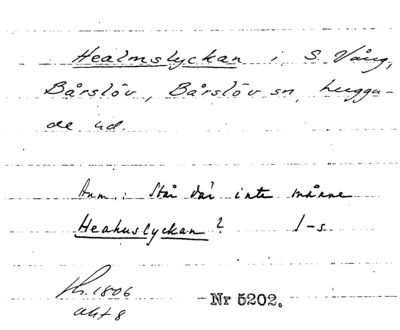 Healmslyckan i S. Vång,
Bårslöv, Bårslöv sn, Luggu-
de hd.
Anm.: Står där inte månne
Heahuslyckan? I-s.
1806
akt 8
Nr 5202.